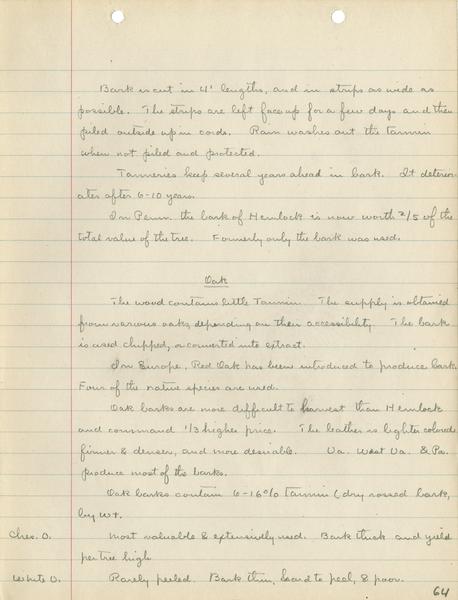 Bark is cut in 4' lengths, and in strips as wide as
possible. The strips are left face up for a few days and then
piled outside up in cords. Rain washes out the tannin
when not piled and protected.
Tanneries keep several years ahead in bark. It deterior-
ates after 6-10 years.
In Penn. the bark of Hemlock is now worth 2/5 of the
total value of the tree. Formerly only the bark was used.
Oak
The wood contains little Tannin. The supply is obtained
from various oaks, depending on their accessibility. The bark
is used chipped, or converted into extract.
In Europe, Red Oak has been introduced to produce bark.
Four of the native species are used.
Oak barks are more difficult to harvest than Hemlock
and command 1/3 higher price. The leather is lighter colored
firmer & denser, and more desirable. Va. West Va. & Pa.
produce most of the barks.
Oak barks contain 6-16% Tannin (dry rossed bark,
by Wt.
Ches. O. most valuable & extensively used. Bark thick and yield
per tree high
White O. Rarely peeled. Bark thin, hard to peel, & poor.
64